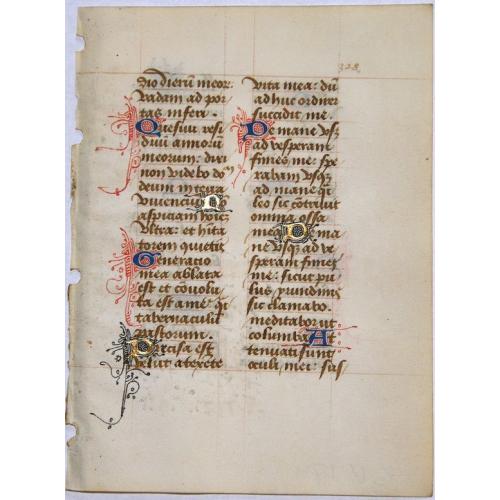 328
dio dierū meor:
vadam ad por
tas inferi.
Quesivi resi
duū annorū
meorum: dixi
non videbo dō
deum in terra
viventiū Nō
aspiciam hoīez
ultra: et hītā
torem quietis
Generatio
mea ablata
est et convolu
ta est a me: qī
tabernaculū
pastorum.
Precisa est
velut a texēte
vita mea: dū
adhuc ordirer
succidit me.
De mane usqz
ad vesperam
finies me: spe
rabam usqz
ad mane qī
leo sic cōtrivit
omnia ossa
mea De ma
ne usqz ad ve
speram finies
me: sicut pul
lus yrundinis
sic clamabo.
meditabor ut
columba At
tenuati sunt
oculi mei: sus